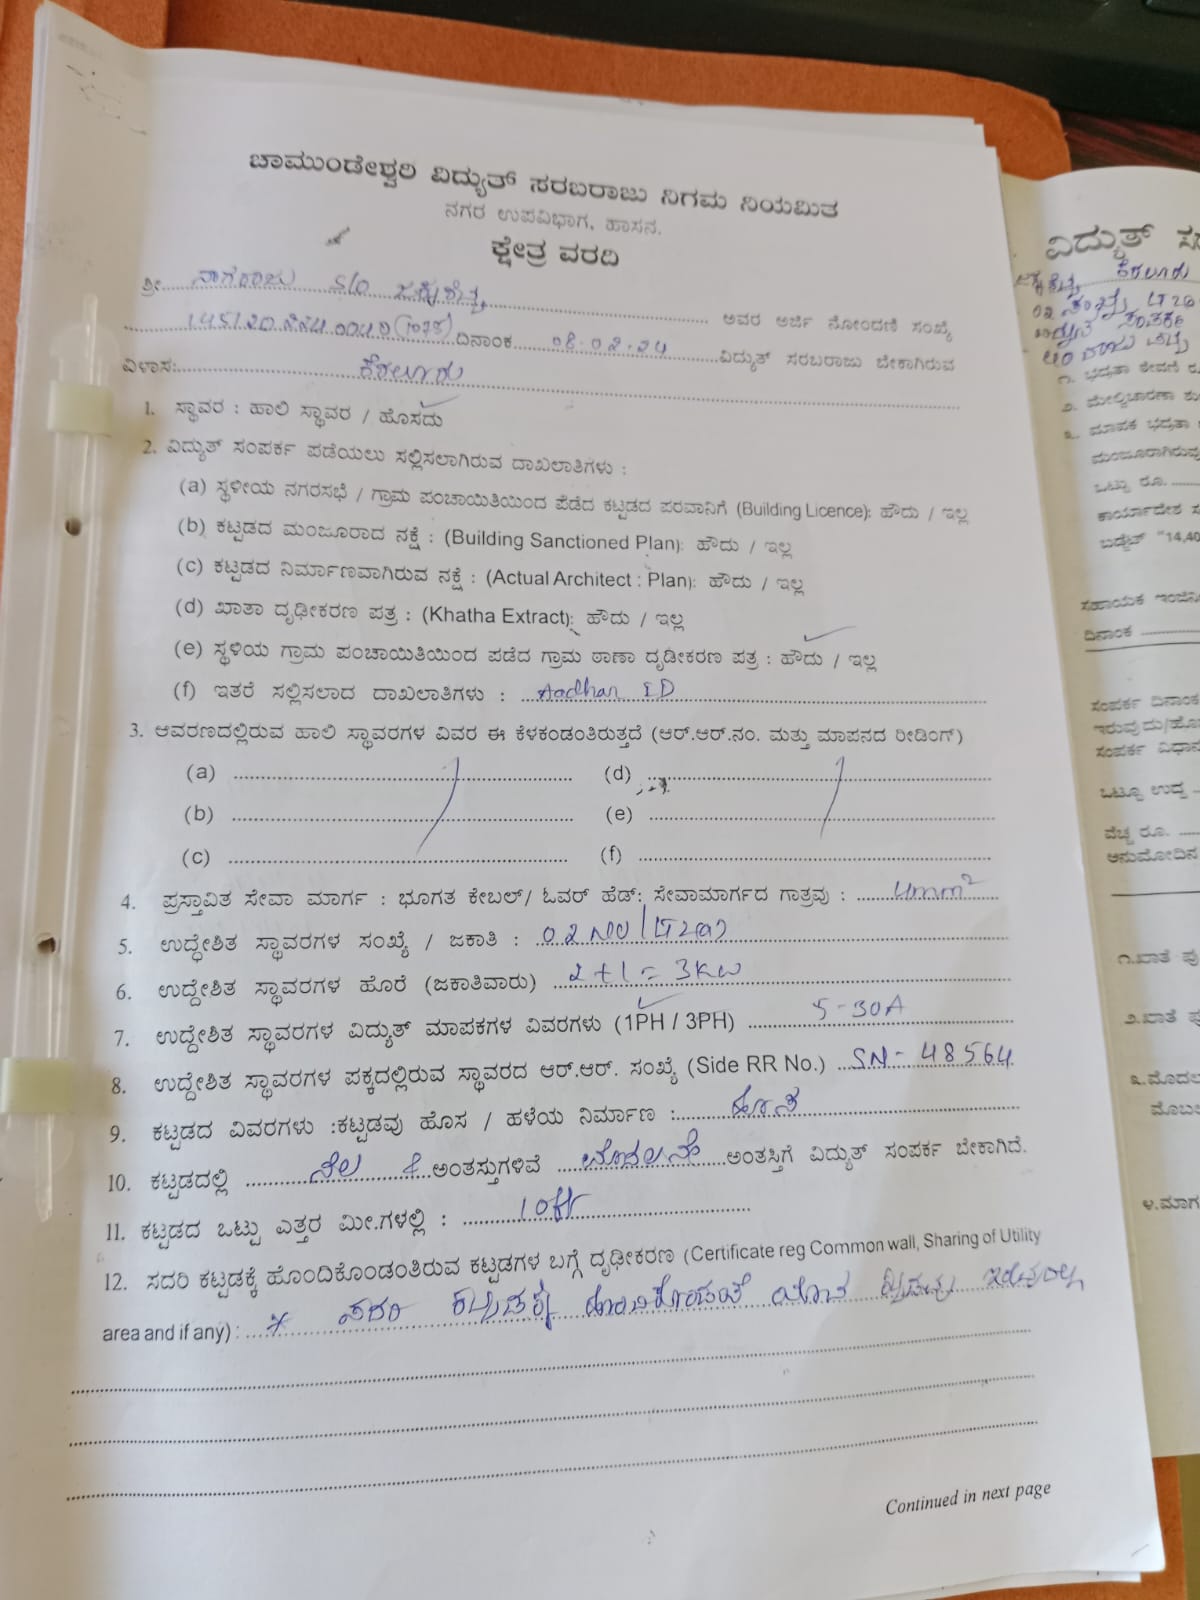 ಚಾಮುಂಡೇಶ್ವರಿ ವಿದ್ಯುತ್ ಸರಬರಾಜು ನಿಗಮ ನಿಯಮಿತ
ನಗರ ಉಪವಿಭಾಗ, ಹಾಸನ.
ಕ್ಷೇತ್ರ ವರದಿ
ಶ್ರೀ ನಾಗರಾಜು S/O
ಅವರ ಅರ್ಜಿ ನೋಂದಣಿ ಸಂಖ್ಯೆ
ದಿನಾಂಕ 08.02.24 ವಿದ್ಯುತ್ ಸರಬರಾಜು ಬೇಕಾಗಿರುವ
ವಿಳಾಸ: ಕೆರಲೂರು
1. ಸ್ಥಾವರ : ಹಾಲಿ ಸ್ಥಾವರ / ಹೊಸದು
2. ವಿದ್ಯುತ್ ಸಂಪರ್ಕ ಪಡೆಯಲು ಸಲ್ಲಿಸಲಾಗಿರುವ ದಾಖಲಾತಿಗಳು :
(a) ಸ್ಥಳೀಯ ನಗರಸಭೆ / ಗ್ರಾಮ ಪಂಚಾಯಿತಿಯಿಂದ ಪೆಡೆದ ಕಟ್ಟಡದ ಪರವಾನಿಗೆ (Building Licence): ಹೌದು / ಇಲ್ಲ
(b) ಕಟ್ಟಡದ ಮಂಜೂರಾದ ನಕ್ಷೆ : (Building Sanctioned Plan): ಹೌದು / ಇಲ್ಲ
(c) ಕಟ್ಟಡದ ನಿರ್ಮಾಣವಾಗಿರುವ ನಕ್ಷೆ : (Actual Architect : Plan): ಹೌದು / ಇಲ್ಲ
(d) ಖಾತಾ ದೃಢೀಕರಣ ಪತ್ರ : (Khatha Extract): ಹೌದು / ಇಲ್ಲ
(e) ಸ್ಥಳಿಯ ಗ್ರಾಮ ಪಂಚಾಯಿತಿಯಿಂದ ಪಡೆದ ಗ್ರಾಮ ಠಾಣಾ ದೃಡೀಕರಣ ಪತ್ರ : ಹೌದು / ಇಲ್ಲ
(f) ಇತರೆ ಸಲ್ಲಿಸಲಾದ ದಾಖಲಾತಿಗಳು : Aadhar ID
3. ಆವರಣದಲ್ಲಿರುವ ಹಾಲಿ ಸ್ಥಾವರಗಳ ವಿವರ ಈ ಕೆಳಕಂಡಂತಿರುತ್ತದೆ (ಆರ್.ಆರ್.ನಂ. ಮತ್ತು ಮಾಪನದ ರೀಡಿಂಗ್)
(a) (d)
(b) (e)
(c) (f)
4. ಪ್ರಸ್ತಾವಿತ ಸೇವಾ ಮಾರ್ಗ : ಭೂಗತ ಕೇಬಲ್/ ಓವರ್ ಹೆಡ್: ಸೇವಾಮಾರ್ಗದ ಗಾತ್ರವು : 4mm²
5. ಉದ್ದೇಶಿತ ಸ್ಥಾವರಗಳ ಸಂಖ್ಯೆ / ಜಕಾತಿ :
6. ಉದ್ದೇಶಿತ ಸ್ಥಾವರಗಳ ಹೊರೆ (ಜಕಾತಿವಾರು) 2+1= 3KW
7. ಉದ್ದೇಶಿತ ಸ್ಥಾವರಗಳ ವಿದ್ಯುತ್ ಮಾಪಕಗಳ ವಿವರಗಳು (1PH / 3PH) 5-30A
8. ಉದ್ದೇಶಿತ ಸ್ಥಾವರಗಳ ಪಕ್ಕದಲ್ಲಿರುವ ಸ್ಥಾವರದ ಆರ್.ಆರ್. ಸಂಖ್ಯೆ (Side RR No.) SN-48564
9. ಕಟ್ಟಡದ ವಿವರಗಳು :ಕಟ್ಟಡವು ಹೊಸ / ಹಳೆಯ ನಿರ್ಮಾಣ : ಹೊಸ
10. ಕಟ್ಟಡದಲ್ಲಿ ನೆಲ & ಅಂತಸ್ತುಗಳಿವೆ ಮೊದಲನೆ ಅಂತಸ್ತಿಗೆ ವಿದ್ಯುತ್ ಸಂಪರ್ಕ ಬೇಕಾಗಿದೆ.
11. ಕಟ್ಟಡದ ಒಟ್ಟು ಎತ್ತರ ಮೀ.ಗಳಲ್ಲಿ : 10ft
12. ಸದರಿ ಕಟ್ಟಡಕ್ಕೆ ಹೊಂದಿಕೊಂಡಂತಿರುವ ಕಟ್ಟಡಗಳ ಬಗ್ಗೆ ದೃಢೀಕರಣ (Certificate reg Common wall, Sharing of Utility
area and if any) : * ಸದರಿ ಕಟ್ಟಡಕ್ಕೆ
Continued in next page
ವಿದ್ಯುತ್
ಒಟ್ಟು ರೂ.
ಬಡ್ಜೆಟ್ "14,40
ದಿನಾಂಕ
ಸಂಪರ್ಕ ದಿನಾಂಕ
ವೆಚ್ಚ ರೂ.